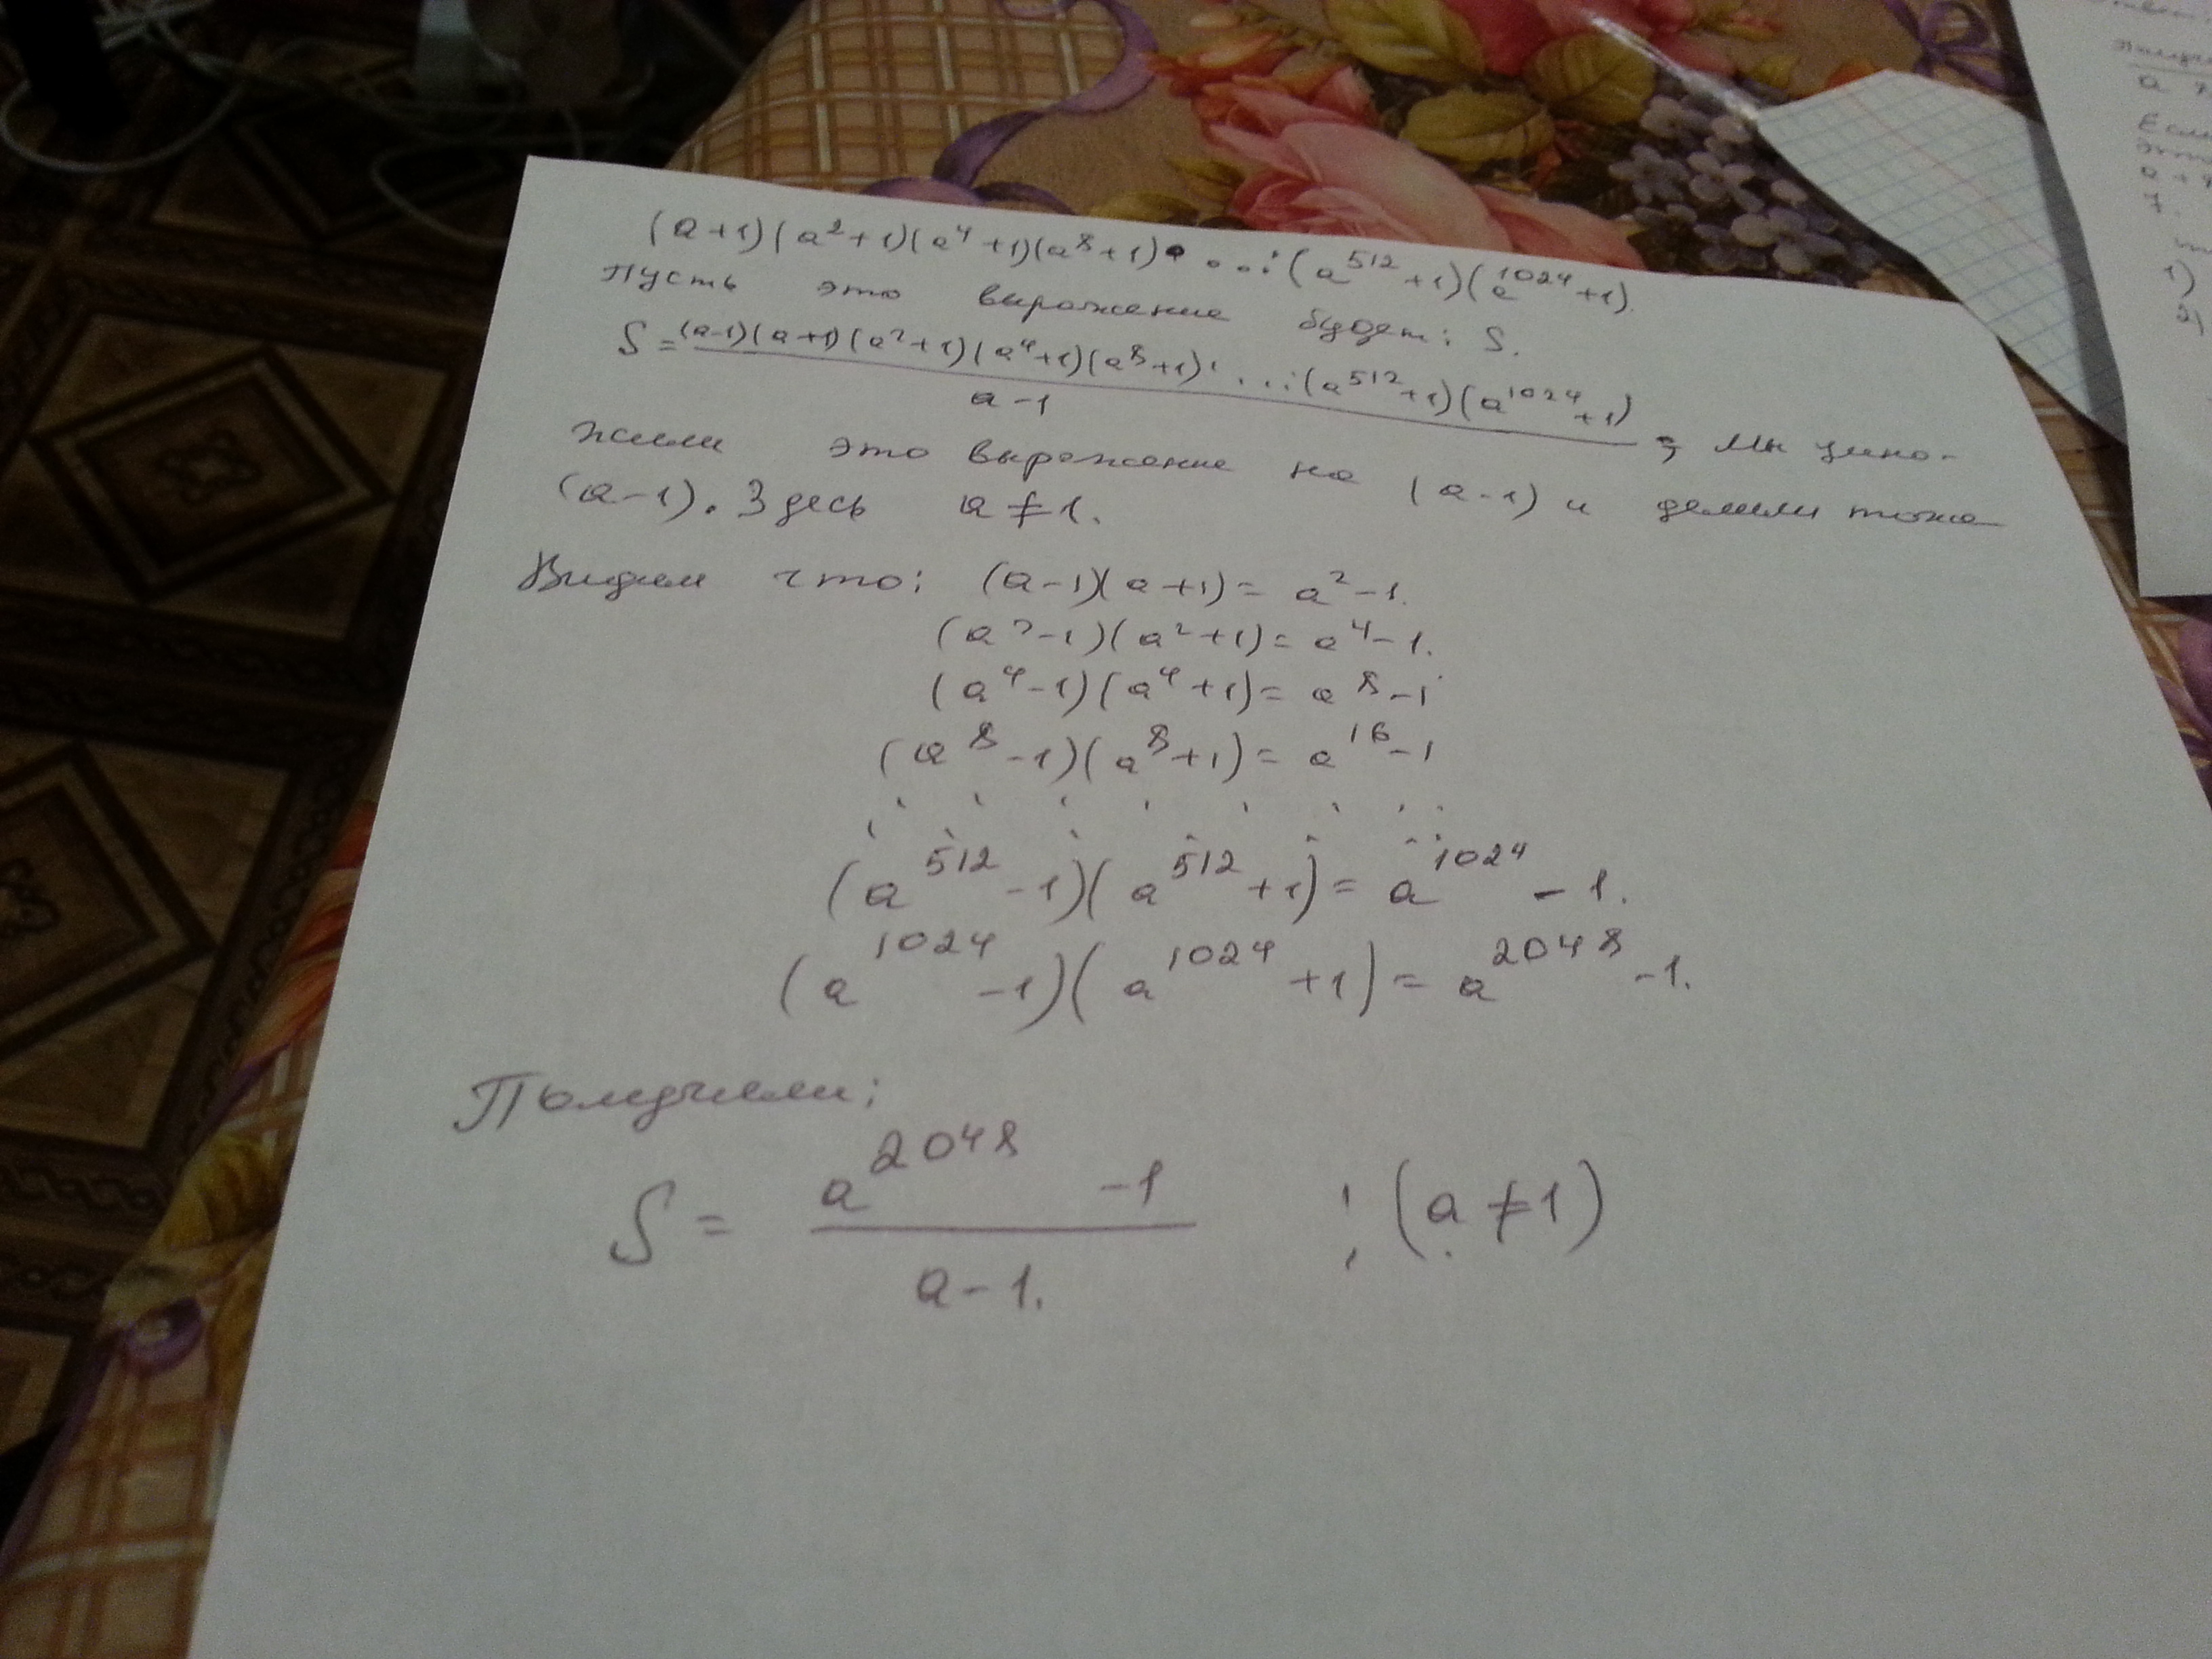 (a+1)(a²+1)(a⁴+1)(a⁸+1)· ...·(a⁵¹²+1)(a¹⁰²⁴+1).
Пусть это выражение будет: S.
S = (a-1)(a+1)(a²+1)(a⁴+1)(a⁸+1)· ...·(a⁵¹²+1)(a¹⁰²⁴+1)
a-1
; Мы умно-
жили это выражение на (a-1) и делили тоже
(a-1). Здесь a≠1.
Видим что: (a-1)(a+1)= a²-1.
(a²-1)(a²+1)= a⁴-1.
(a⁴-1)(a⁴+1)= a⁸-1
(a⁸-1)(a⁸+1)= a¹⁶-1
(a⁵¹²-1)(a⁵¹²+1)= a¹⁰²⁴-1.
(a¹⁰²⁴-1)(a¹⁰²⁴+1)= a²⁰⁴⁸-1.
Получили:
S = a²⁰⁴⁸-1 ; (a≠1)
a-1.
Если
1)
2)